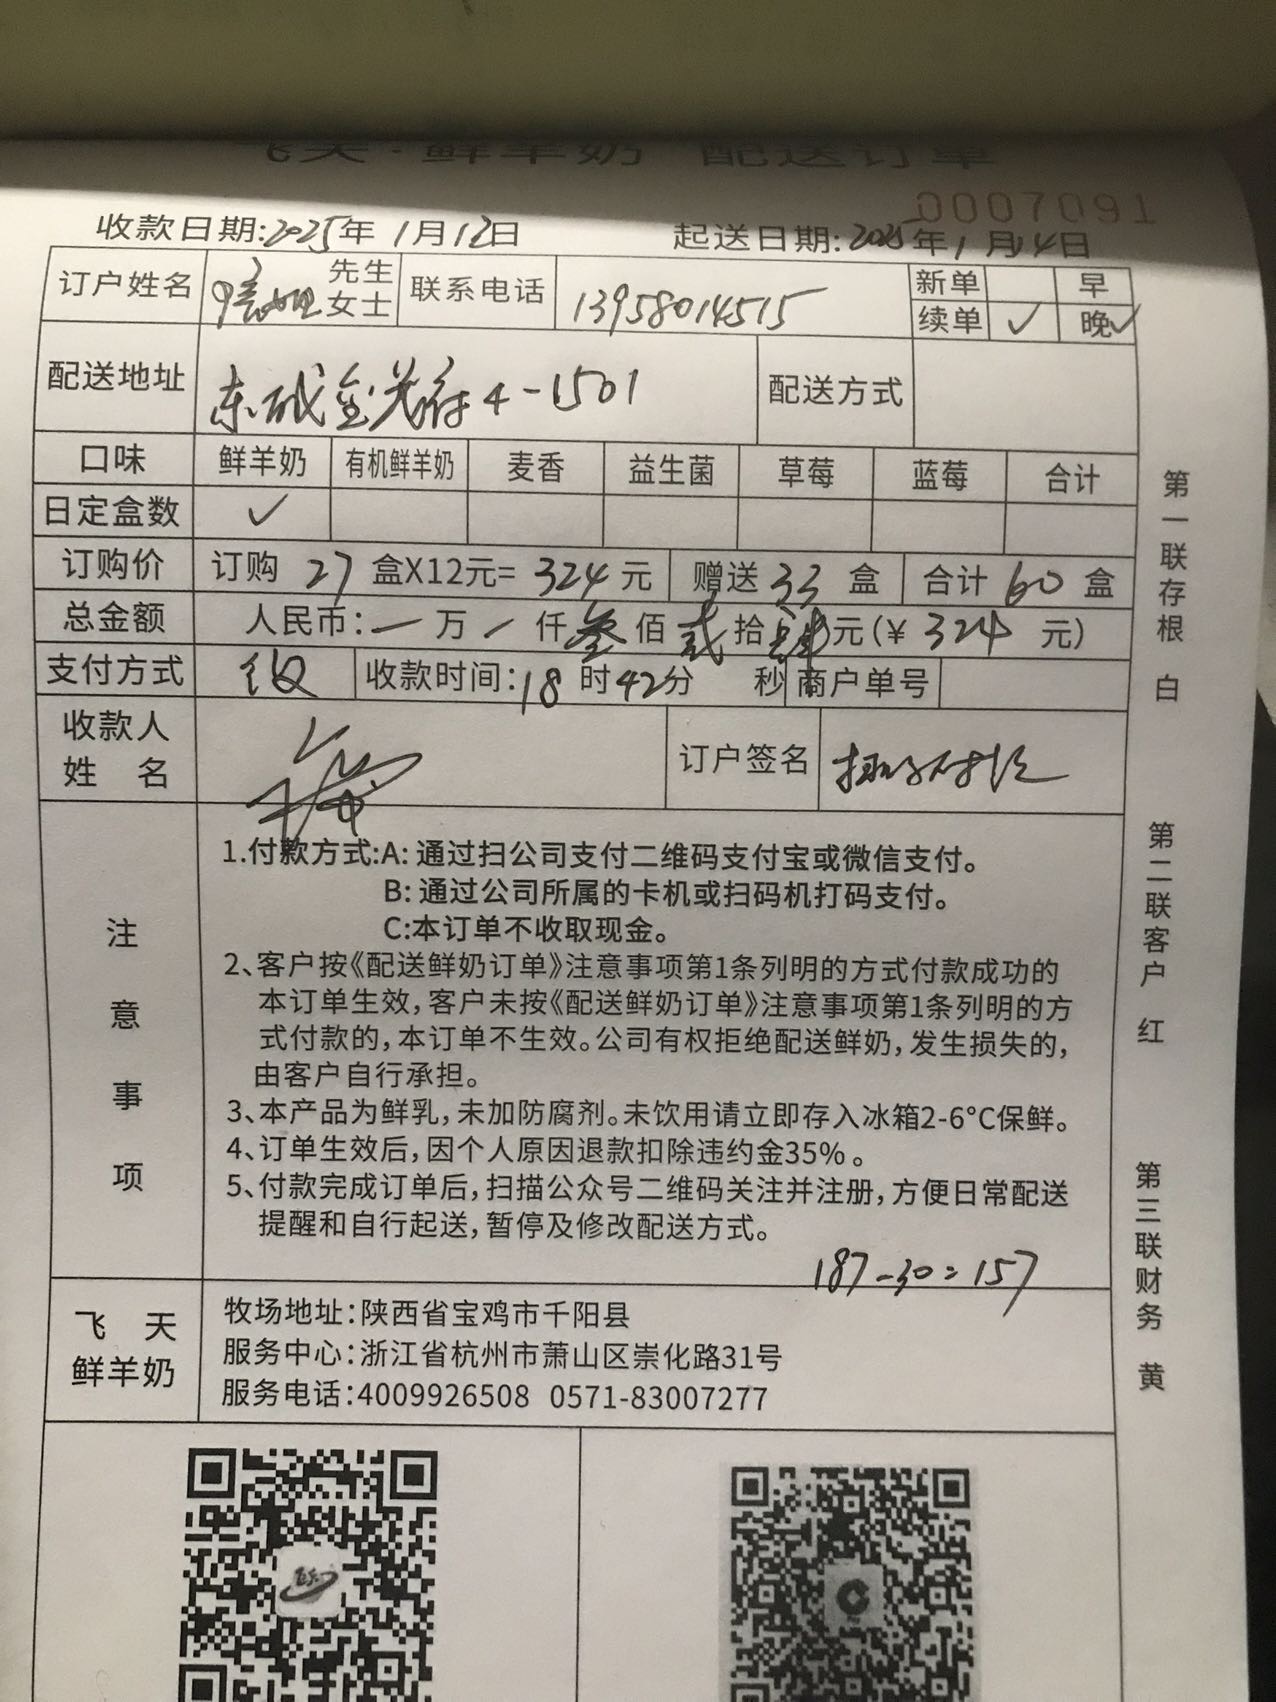 飞天·鲜羊奶 配送订单
0007091
收款日期:2025年1月12日 起送日期:2025年1月14日
订户姓名 先生 女士 联系电话 13958014515 新单 早
续单 ✓ 晚✓
配送地址 东城金茂府4-1501 配送方式
口味 鲜羊奶 有机鲜羊奶 麦香 益生菌 草莓 蓝莓 合计
日定盒数 ✓
订购价 订购 27 盒X12元= 324 元 赠送 33 盒 合计 60 盒
总金额 人民币: 一 万 / 仟 叁 佰 贰 拾 肆 元(¥ 324 元)
支付方式 收款时间:18 时 42分 秒 商户单号
收款人姓名 订户签名
注意事项
1.付款方式:A: 通过扫公司支付二维码支付宝或微信支付。
B: 通过公司所属的卡机或扫码机打码支付。
C:本订单不收取现金。
2、客户按《配送鲜奶订单》注意事项第1条列明的方式付款成功的
本订单生效,客户未按《配送鲜奶订单》注意事项第1条列明的方
式付款的,本订单不生效。公司有权拒绝配送鲜奶,发生损失的,
由客户自行承担。
3、本产品为鲜乳,未加防腐剂。未饮用请立即存入冰箱2-6°C保鲜。
4、订单生效后,因个人原因退款扣除违约金35%。
5、付款完成订单后,扫描公众号二维码关注并注册,方便日常配送
提醒和自行起送,暂停及修改配送方式。
187-30=157
飞天
鲜羊奶
牧场地址:陕西省宝鸡市千阳县
服务中心:浙江省杭州市萧山区崇化路31号
服务电话:4009926508 0571-83007277
第一联存根 白
第二联客户 红
第三联财务 黄